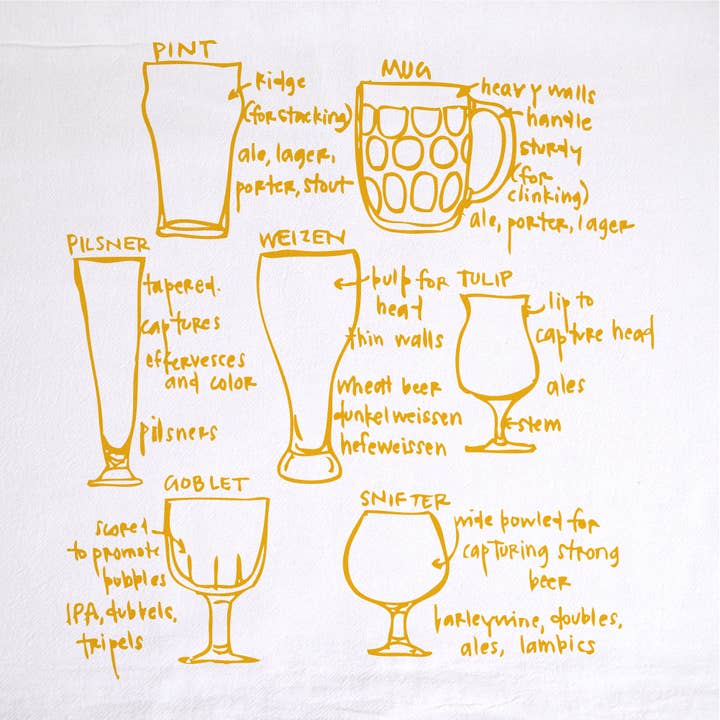 PINT
Ridge
(for stacking)
ale, lager,
porter, stout
MUG
heavy walls
handle
sturdy
(for
clinking)
ale, porter, lager
PILSNER
tapered.
captures
effervesces
and color
pilsners
WEIZEN
bulb for
head
thin walls
wheat beer
dunkelweissen
hefeweissen
TULIP
lip to
capture head
ales
stem
GOBLET
scored
to promote
bubbles
IPA, dubbels,
tripels
SNIFTER
wide bowled for
capturing strong
beer
barleywine, doubles,
ales, lambics